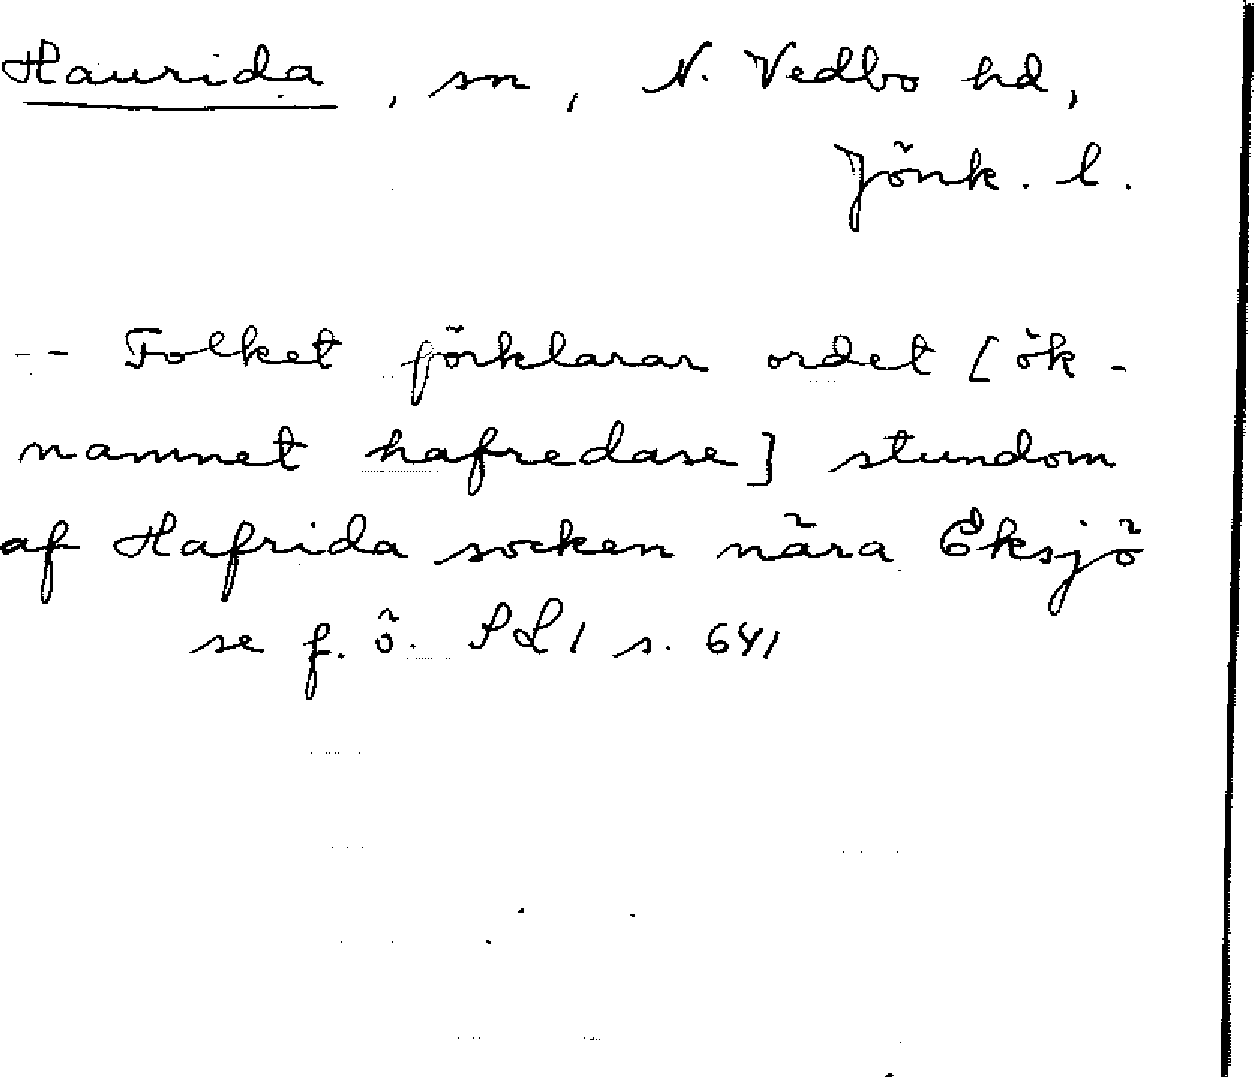 Haurida, sn, N. Vedbo hd,
Jönk. l.
-- Folket förklarar ordet [ök-
namnet hafredase] stundom
af Hafrida socken nära Eksjö
se f. ö. SL1 s. 641